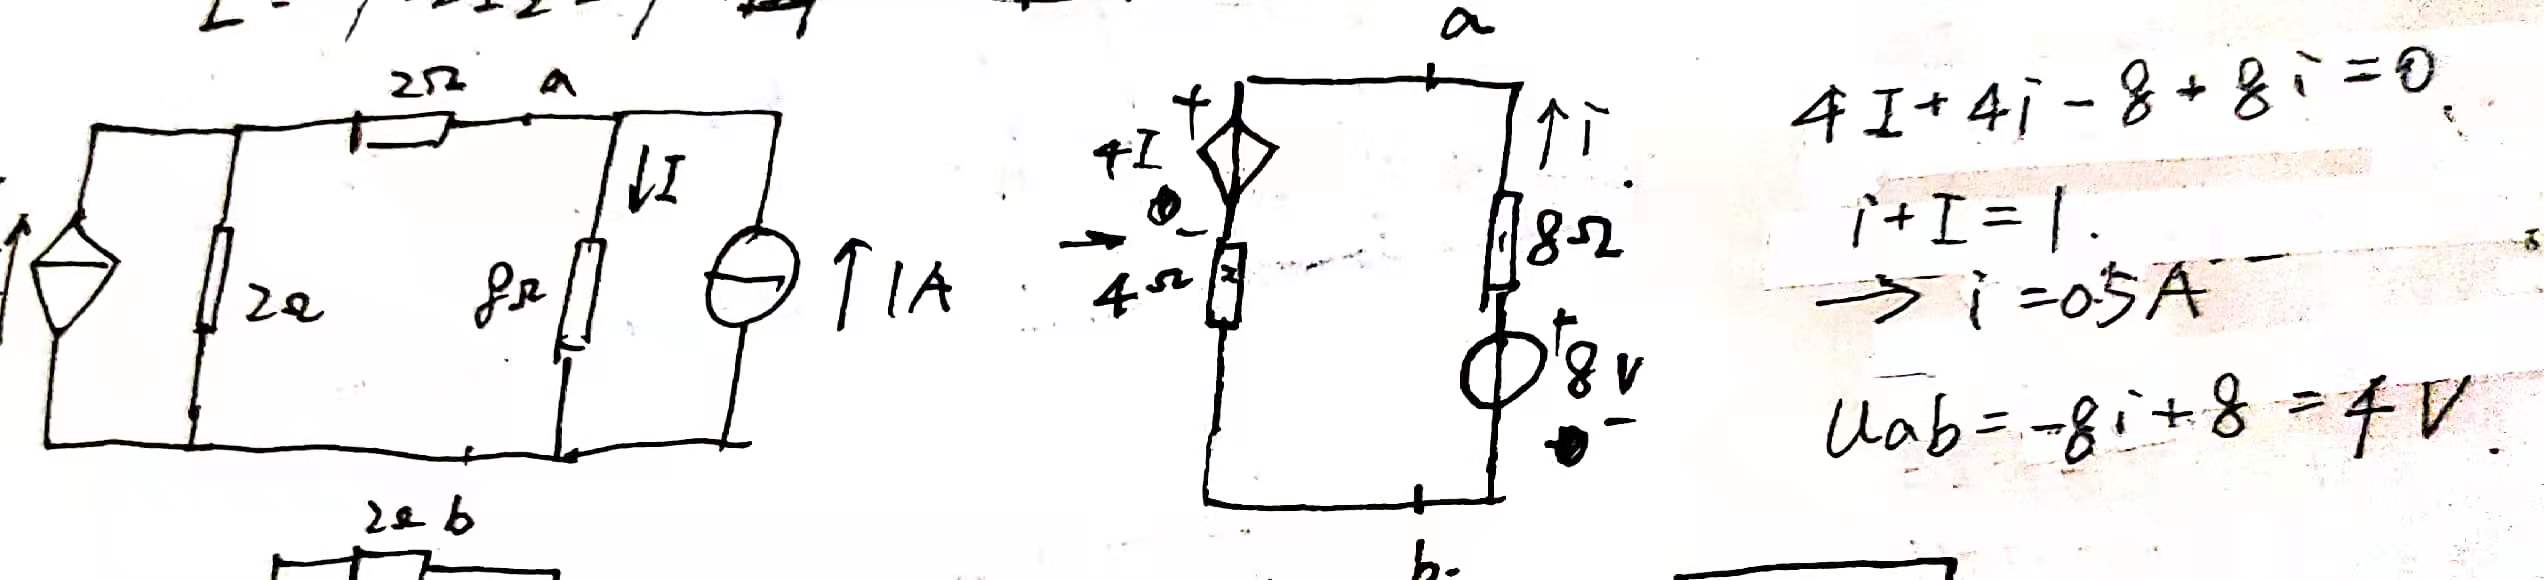 2Ω a
↓I
2Ω
8Ω
↑1A
2Ω b
a
+
4I
-
→
4Ω
↑i
8Ω
+
8V
-
b.
4I+4i-8+8i=0.
i+I=1.
→ i=0.5A
Uab=-8i+8=4V.